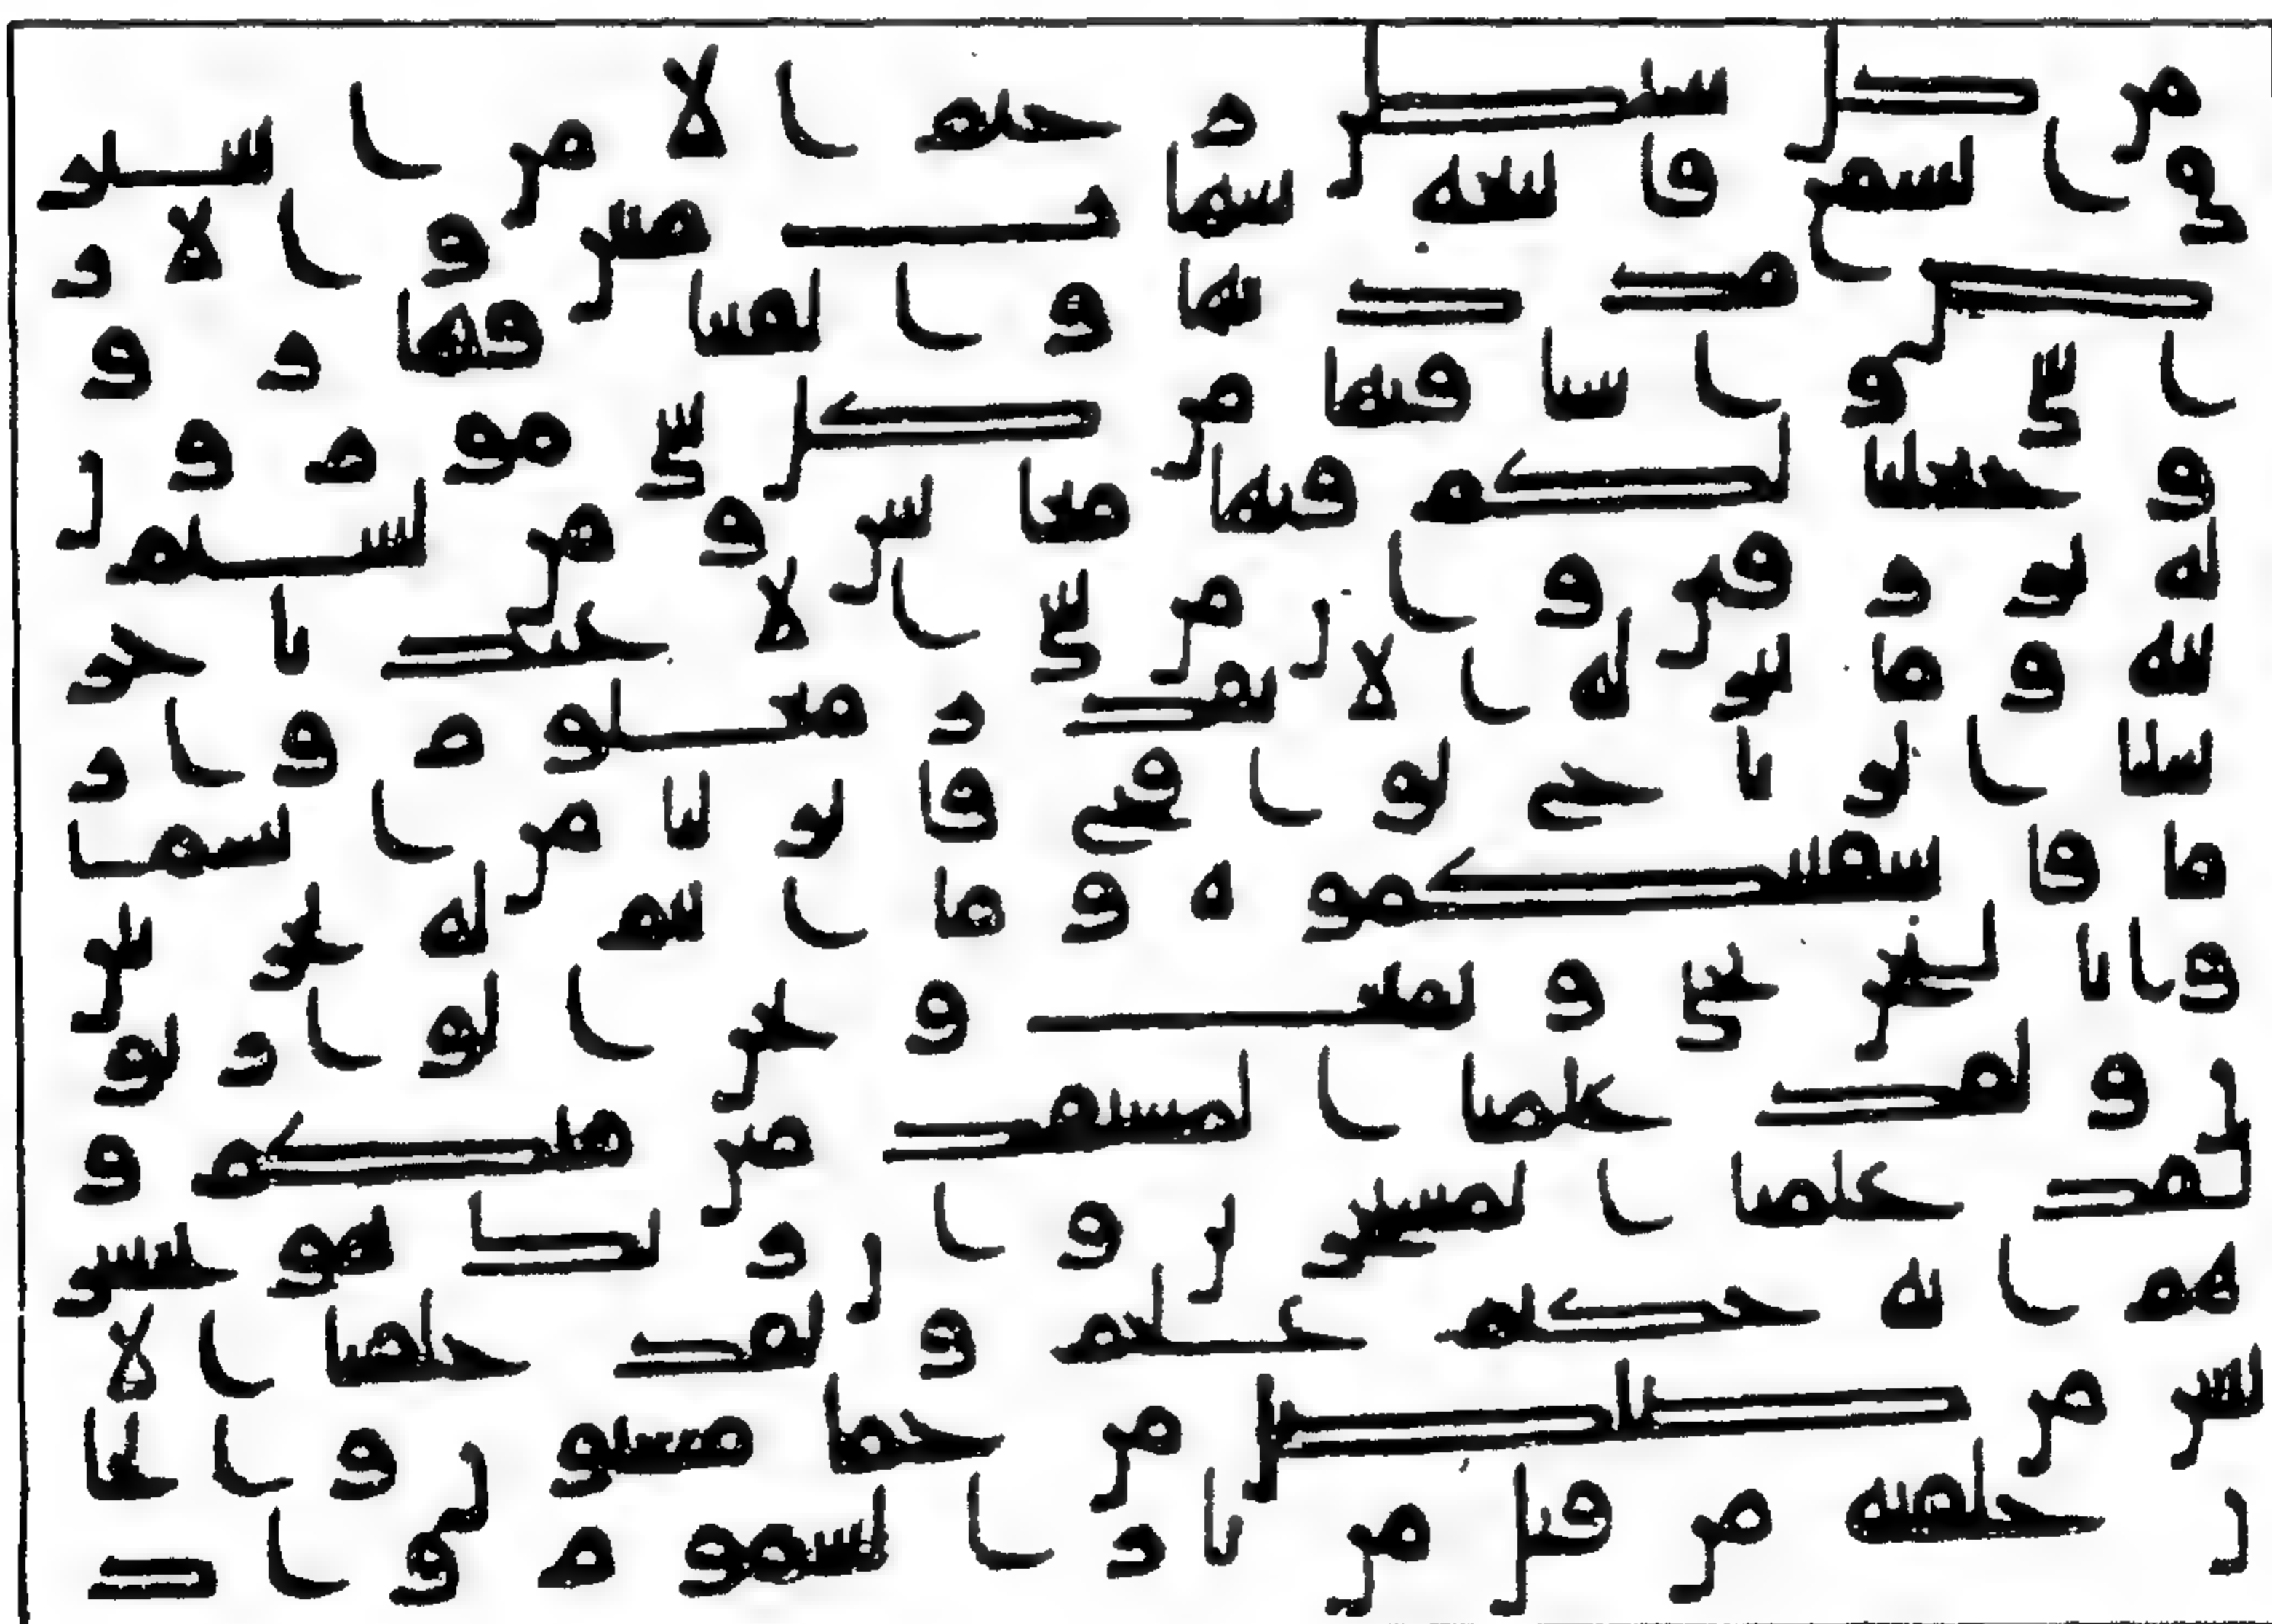 من كل شيطن رجيم الا من استر
ق السمع فاتبعه شهاب مبين والار
ض مددنها والقينا فيها رو
اسي وانبتنا فيها من كل شي موزون
وجعلنا لكم فيها معيش ومن لستم
له برزقين وان من شي الا عندنا خز
ئنه وما ننزله الا بقدر معلوم وار
سلنا الرياح لواقح فانزلنا من السما
ما فاسقينكموه وما انتم له بخزنين
وانا لنحن نحي ونميت ونحن الوارثو
ن ولقد علمنا المستقدمين منكم و
لقد علمنا المستخرين وان ربك هو يحشر
هم انه حكيم عليم ولقد خلقنا الا
نسن من صلصل من حما مسنون والجا
ن خلقنه من قبل من نار السموم واذ